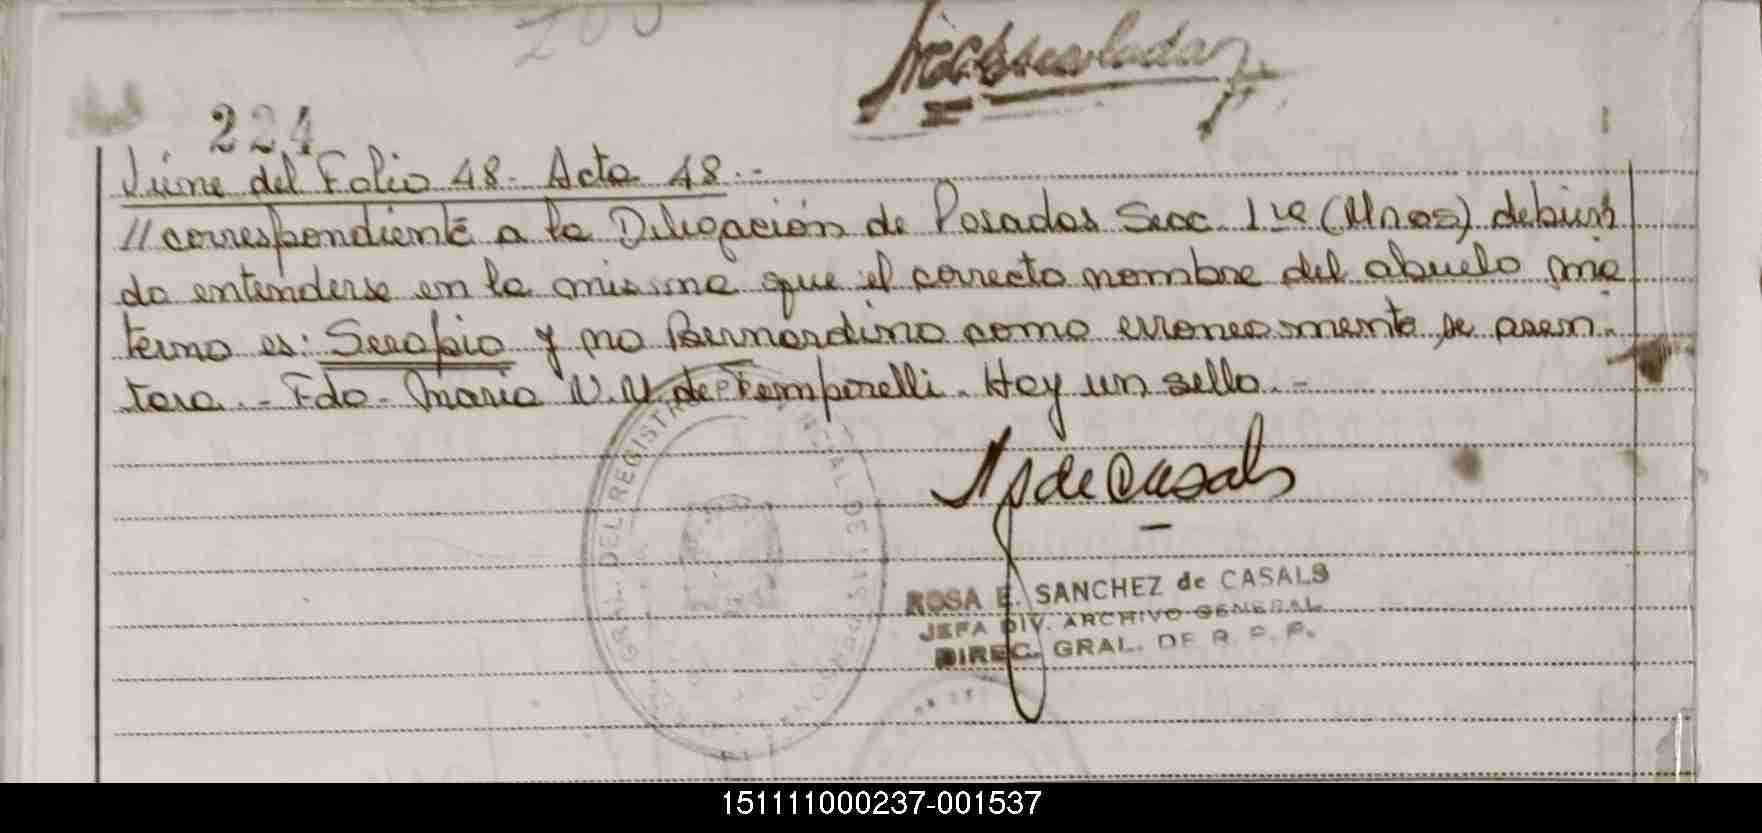 200
Microscopeada
224
Viene del Folio 48.- Acta 48.-
// correspondiente a la Delegación de Posadas Secc. 1ra (Mnes) debien
do entenderse en la misma que el correcto nombre del abuelo ma
terno es: Serapio y no Bernardino como erroneamente se asen-
tara.- Fdo- Maria V.V. de Temporelli. Hay un sello.-
de Casals
ROSA E. SANCHEZ de CASALS
JEFA DIV. ARCHIVO GENERAL
DIREC. GRAL. DE R. P. P.
GRAL. DEL REGISTRO PROVINCIAL DE LAS PERSONAS
151111000237-001537